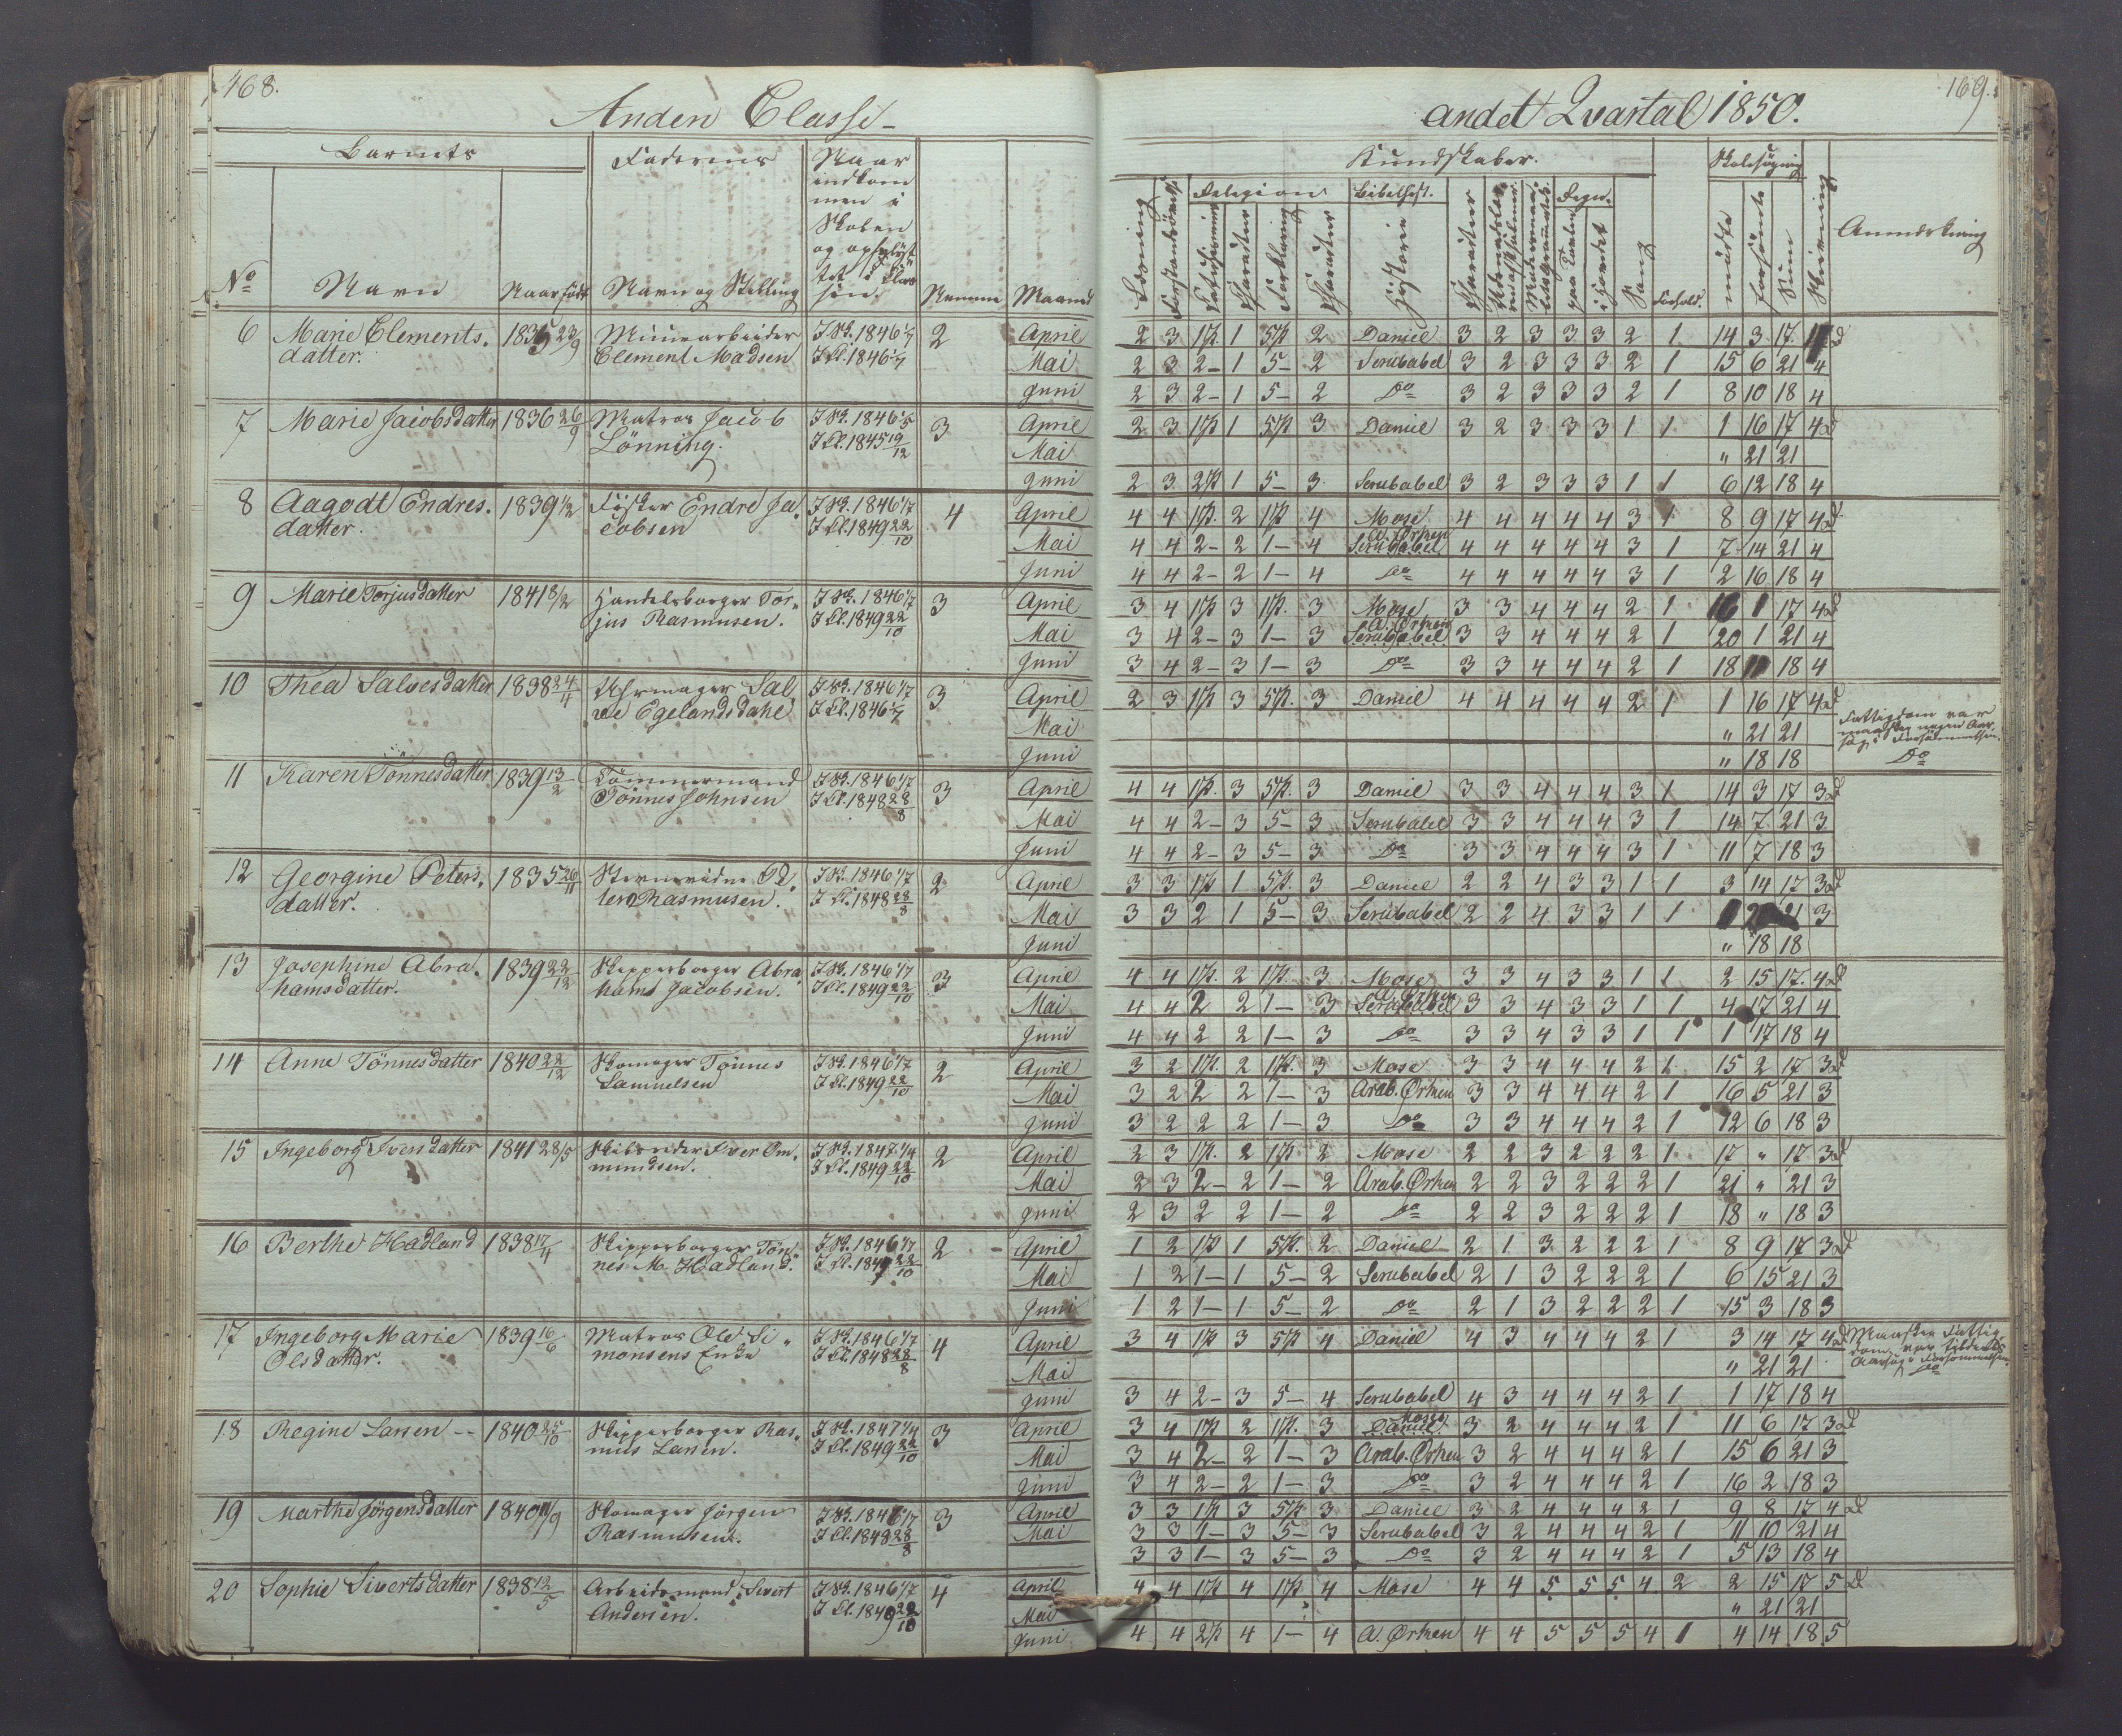 168.
Anden Classe-
Barnets
Faderens
Naar indkommen i Skolen og opflyttet i Classen.
No
Navn
Naar født
Navn og Stilling
Nemme
Maaned
6 Marie Clements. 1835 23/9 Minearbeider I Sk. 1846 1/7 2 April
datter. Clement Madsen I Cl. 1846 1/7 Mai
Juni
7 Marie Jacobsdatter 1836 26/9 Matros Jacob I Sk. 1846 1/5 3 April
Lønning. I Cl. 1845 19/12 Mai
Juni
8 Aagodt Endres. 1839 1/2 Fisker Endre Ja. I Sk. 1846 1/7 4 April
datter. cobsen I Cl. 1849 22/10 Mai
Juni
9 Marie Torjusdatter 1841 8/2 Handelsborger Tor- I Sk. 1846 1/7 3 April
jus Rasmusen. I Cl. 1849 22/10 Mai
Juni
10 Thea Salvesdatter 1838 24/4 Uhrmager Sal I Sk. 1846 1/7 3 April
ve Egelandsdahl I Cl. 1846 1/7 Mai
Juni
11 Karen Tønnesdatter 1839 13/2 Tømmermand I Sk. 1846 1/7 3 April
Tønnes Johnsen I Cl. 1848 28/8 Mai
Juni
12 Georgine Peters. 1835 26/11 Pe. I Sk. 1846 1/7 2 April
datter. ter Rasmusen. I Cl. 1848 28/8 Mai
Juni
13 Josephine Abra. 1839 22/12 Skipperborger Abra I Sk. 1846 1/7 3 April
hamsdatter. hams Jacobsen. I Cl. 1849 22/10 Mai
Juni
14 Anne Tønnesdatter 1840 22/12 Skomager Tønnes I Sk. 1846 1/7 2 April
Samuelsen I Cl. 1849 22/10 Mai
Juni
15 Ingeborg Iversdatter 1841 28/5 Iver Om. I Sk. 1847 1/4 2 April
mundsen. I Cl. 1849 22/10 Mai
Juni
16 Berthe Hadland 1838 17/4 Skipperborger Tøn I Sk. 1846 1/7 2 April
nes M. Hadland. I Cl. 1849 22/10 Mai
Juni
17 Ingeborg Marie 1839 16/6 Matros Ole Si- I Sk. 1846 1/7 4 April
Olsdatter. monsens Enke I Cl. 1848 28/8 Mai
Juni
18 Regine Larsen -- 1840 25/10 Skipperborger Ras- I Sk. 1847 1/4 3 April
mus Larsen. I Cl. 1849 22/10 Mai
Juni
19 Marthe Jørgensdatter 1840 11/9 Skomager Jørgen I Sk. 1846 1/7 3 April
Rasmusen. I Cl. 1849 28/8 Mai
20 Sophie Sivertsdatter 1838 12/5 Arbeidsmand Sivert I Sk. 1846 1/7 4 April
Andersen. I Cl. 1849 22/10 Mai
Juni
169.
andet Qvartal 1850.
Kundskaber.
Skolesøgning
Læsning
Forstandsøvelse
Religion
Bibelhist.
Historie
Regn.
paa Tavlen
i Hovedet
Sang
Forhold.
mødte
forsømte
Sum
Skrivning
Anmærkning
2 3 1P. 1 5P. 2 Daniel 3 2 3 3 3 2 1 14 3 17
2 3 2- 1 5- 2 Serubabel 3 2 3 3 3 2 1 15 6 21 4
2 3 2- 1 5- 2 Do 3 2 3 3 3 2 1 8 10 18 4
2 3 1P 1 5P 3 Daniel 3 2 3 3 3 1 1 1 16 17 4
" 21 21
2 3 2P 1 5- 3 Serubabel 3 2 3 3 3 1 1 6 12 18 4
4 4 1P. 2 1P 4 Mose 4 4 4 4 4 3 1 8 9 17 4
4 4 2- 2 1- 4 Serubabel A. Ørken 4 4 4 4 4 3 1 7 14 21 4
4 4 2- 2 1- 4 Do 4 4 4 4 4 3 1 2 16 18 4
3 4 1P 3 1P. 3 Mose 3 3 4 4 4 2 1 16 1 17 4
3 4 2- 3 1- 3 Serubabel A. Ørken 3 3 4 4 4 2 1 20 1 21 4
3 4 2- 3 1- 3 Do 3 3 4 4 4 2 1 18 18 4
2 3 1P 3 5P. 3 Daniel 4 4 4 4 4 2 1 1 16 17 4 Fattigdom var
" 21 21 maaskee nogen Aar
" 18 18 sag i Forsømmelsen. Do
4 4 1P. 3 5P. 3 Daniel 3 3 4 4 4 3 1 14 3 17 3
4 4 2- 3 5- 3 Serubabel 3 3 4 4 4 3 1 14 7 21 3
4 4 2- 3 5- 3 Do 3 3 4 4 4 3 1 11 7 18 3
3 3 1P 1 5P. 3 Daniel 2 2 4 3 3 1 1 3 14 17 3
3 3 2 1 5- 3 Serubabel 2 2 4 3 3 1 1 21 3
" 18 18
4 4 1P. 2 1P. 3 Mose 3 3 4 3 3 1 1 2 15 17. 4
4 4 2 2 1- 3 Serubabel 3 3 4 3 3 1 1 4 17 21 4
4 4 2 2 1- 3 Do 3 3 4 3 3 1 1 1 17 18 4
3 2 1P. 2 1P. 3 Mose 3 3 4 4 4 2 1 15 2 17 3
3 2 2 2 1- 3 Arab. Ørken 3 3 4 4 4 2 1 16 5 21 3
3 2 2 2 1- 3 Do 3 3 4 4 4 2 1 12 6 18 3
2 3 1P. 2 1P 2 Mose 2 2 3 2 2 2 1 17 " 17 3
2 3 2- 2 1- 2 Arab. Ørken 2 2 3 2 2 2 1 21 " 21 3
2 3 2 2 1- 2 Do 2 2 3 2 2 2 1 18 " 18 3
1 2 1P 1 5P. 2 Daniel 2 1 3 2 2 2 1 8 9 17 3
1 2 1- 1 5- 2 Serubabel 2 1 3 2 2 2 1 6 15 21 3
1 2 1- 1 5- 2 Do 2 1 3 2 2 2 1 15 3 18 3
3 4 1P 3 5P 4 Daniel 4 3 4 4 4 2 1 3 14 17 4 Maaskee Fattig
" 21 21 dom var tildeels Aarsag i Forsømmelsen
3 4 2- 3 5- 4 Serubabel 4 3 4 4 4 2 1 1 17 18 4 Do
3 4 1P 2 1P. 3 Daniel Mose 3 2 4 4 4 2 1 11 6 17 3
3 4 2- 2 1- 3 Arab. Ørken 3 2 4 4 4 2 1 15 6 21 3
3 4 2- 2 1- 3 Do 3 2 4 4 4 2 1 16 2 18 3
3 3 1P 3 5P. 3 Daniel 3 2 4 4 4 2 1 9 8 17 4
3 3 1- 3 5- 3 Serubabel 3 2 4 4 4 2 1 11 10 21 4
3 3 1- 3 5- 3 Do 3 2 4 4 4 2 1 5 13 18 4
4 4 1P 4 1P 4 Mose 4 4 5 5 5 4 2 2 15 17 5
" 21 21
4 4 2P 4 1- 4 A. Ørken 4 4 5 5 5 4 1 4 14 18 5